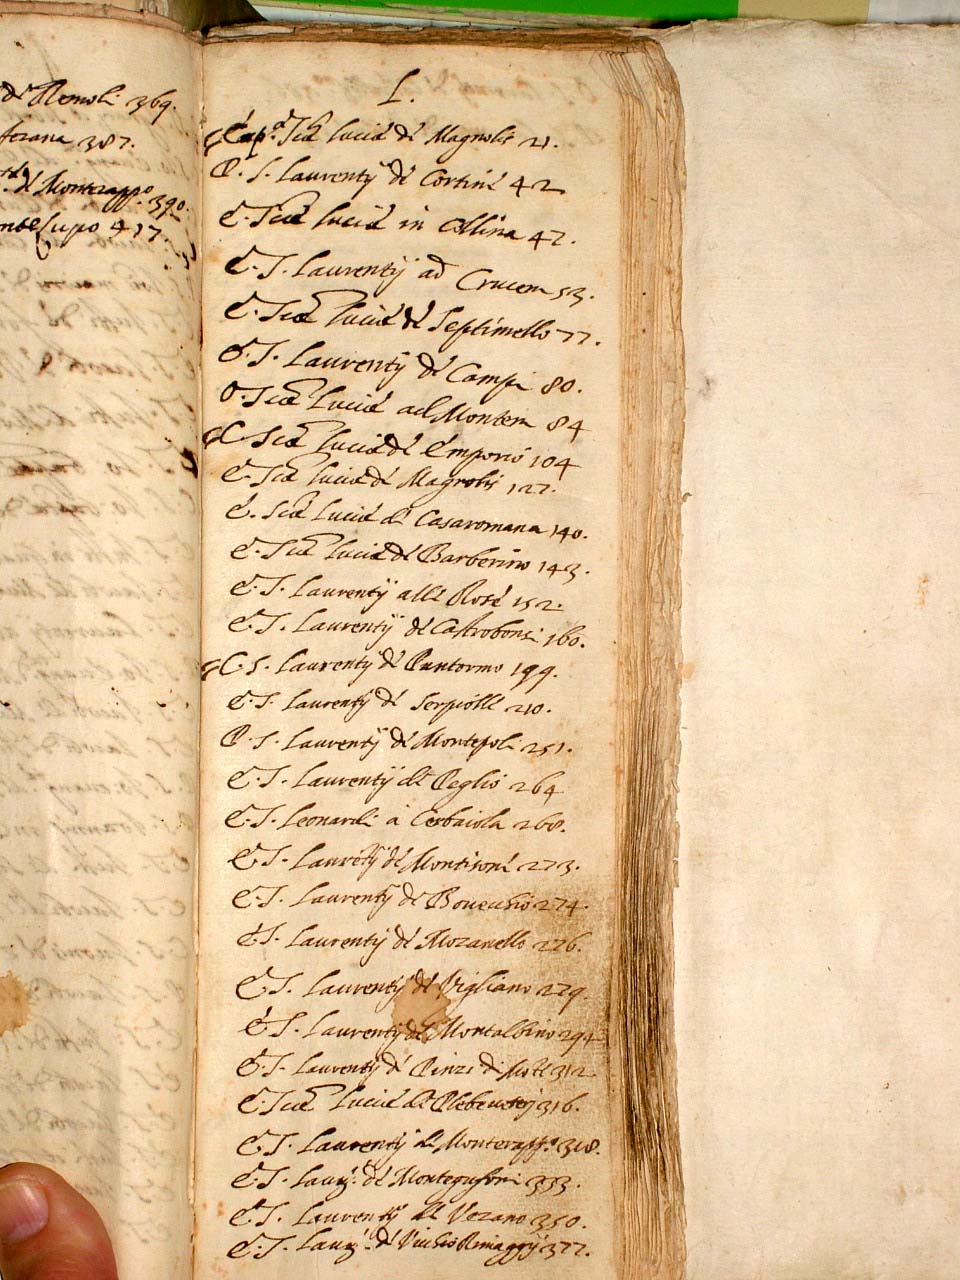 de Remoli 369.
387.
de Monterappo. 390.
Lupo 417.
L.
Cap.a Scæ Luciæ de Magnolis 21.
P. S. Laurentij de Cortine 42
E. Scæ Luciæ in Collina 47.
E. S. Laurentij ad Crucem 53.
E. Scæ Luciæ de Septimello 77.
O. S. Laurentij de Campi 80.
O. Scæ Luciæ ad Montem 84
C. Scæ Luciæ de Emporio 104
E. Scæ Luciæ de Magnolis 127.
E. Scæ Luciæ de Casaromana 140.
E. Scæ Luciæ de Barberino 143.
E. S. Laurentij alle Rose 152.
E. S. Laurentij de Castrobonsi 160.
C. S. Laurentij de Puntormo 199.
E. S. Laurentij de Serpiolle 210.
P. S. Laurentij de Montepoli 251.
E. S. Laurentij de Peglio 264
E. S. Leonardi a Cerbaiola 268.
E. S. Laurētij de Montisoni 273.
E. S. Laurentij de Bovechio 274.
E. S. Laurentij de Mozanello 276.
E. S. Laurentij de Vigliano 279.
E. S. Laurentij de Montalbino 294
O. S. Laurentij de 312.
E. Scæ Luciæ de 316.
E. S. Laurentij de Monterappo. 318.
E. S. Laurj. de Montegufoni 333.
E. S. Laurentij de Vezano 350.
E. S. Laurj. de Vichio Rimaggij 377.